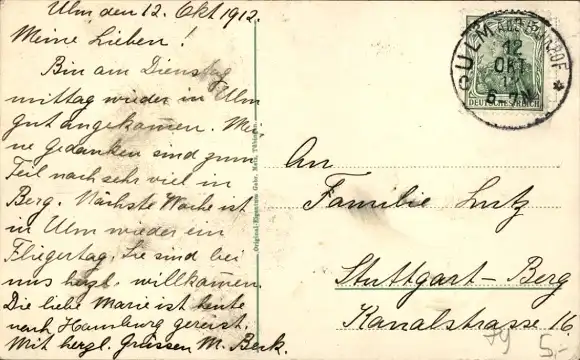 Ulm den 12. Okt 1912.
Meine Lieben!
Bin am Dienstag
mittag wieder in Ulm
gut angekommen. Mei-
ne Gedanken sind zum
Teil noch sehr viel in
Berg. Nächste Woche ist
in Ulm wieder ein
Fliegertag. Sie sind bei
uns herzl. willkommen.
Die liebe Marie ist heute
nach Hamburg gereist.
Mit herzl. Grüssen M. Beck.
Original-Eigentum Gebr. Metz, Tübingen
ULM
BAHNHOF
12
OKT
12
DEUTSCHES REICH
An
Familie Lutz
Stuttgart-Berg
Kanalstrasse 16.
5.-